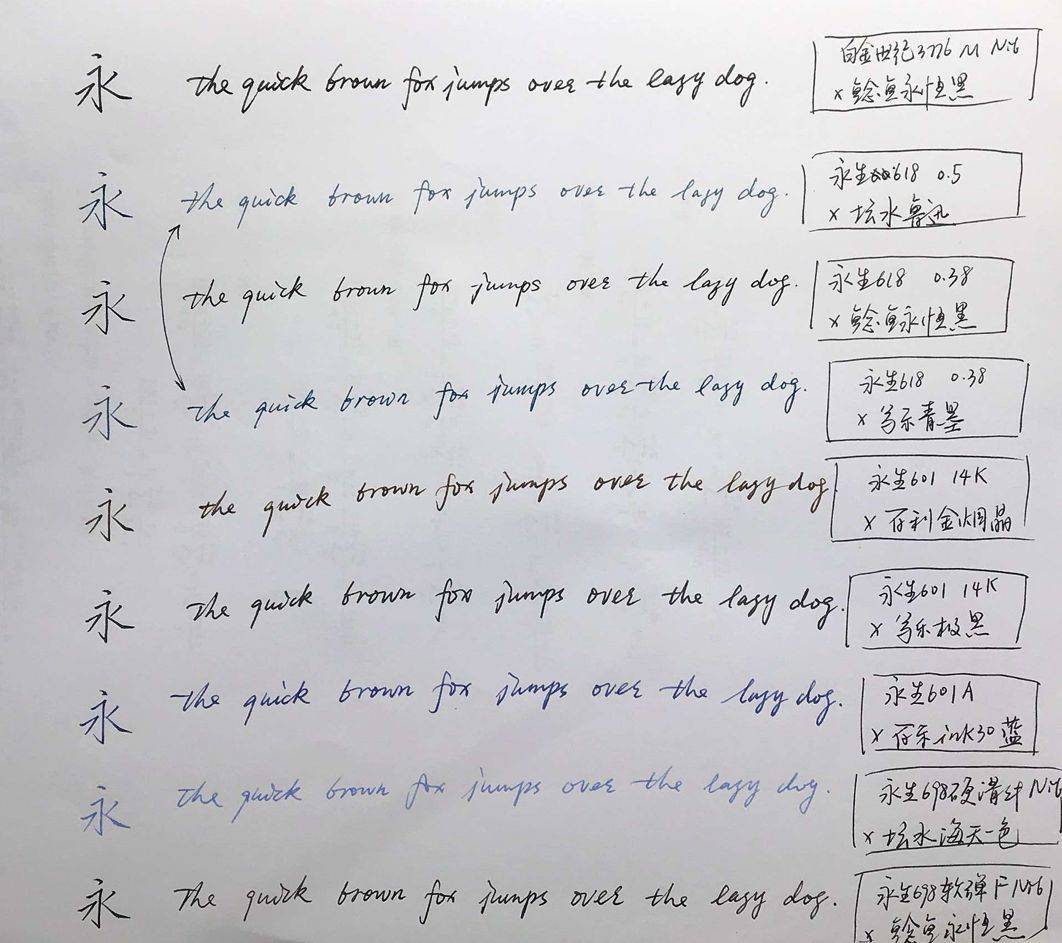 永 the quick brown fox jumps over the lazy dog.
白金世纪3776 M Nib
x 鲶鱼永恒黑
永 the quick brown fox jumps over the lazy dog.
永生618 0.5
x 坛水鲁迅
永 the quick brown fox jumps over the lazy dog.
永生618 0.38
x 鲶鱼永恒黑
永 the quick brown fox jumps over the lazy dog.
永生618 0.38
x 写乐青墨
永 the quick brown fox jumps over the lazy dog.
永生601 14K
x 百利金烟晶
永 the quick brown fox jumps over the lazy dog.
永生601 14K
x 写乐极黑
永 the quick brown fox jumps over the lazy dog.
永生601A
x 百乐ink30蓝
永 the quick brown fox jumps over the lazy dog.
永生698硬滑 Nib
x 坛水海天一色
永 the quick brown fox jumps over the lazy dog.
永生698软弹 F Nib
x 鲶鱼永恒黑